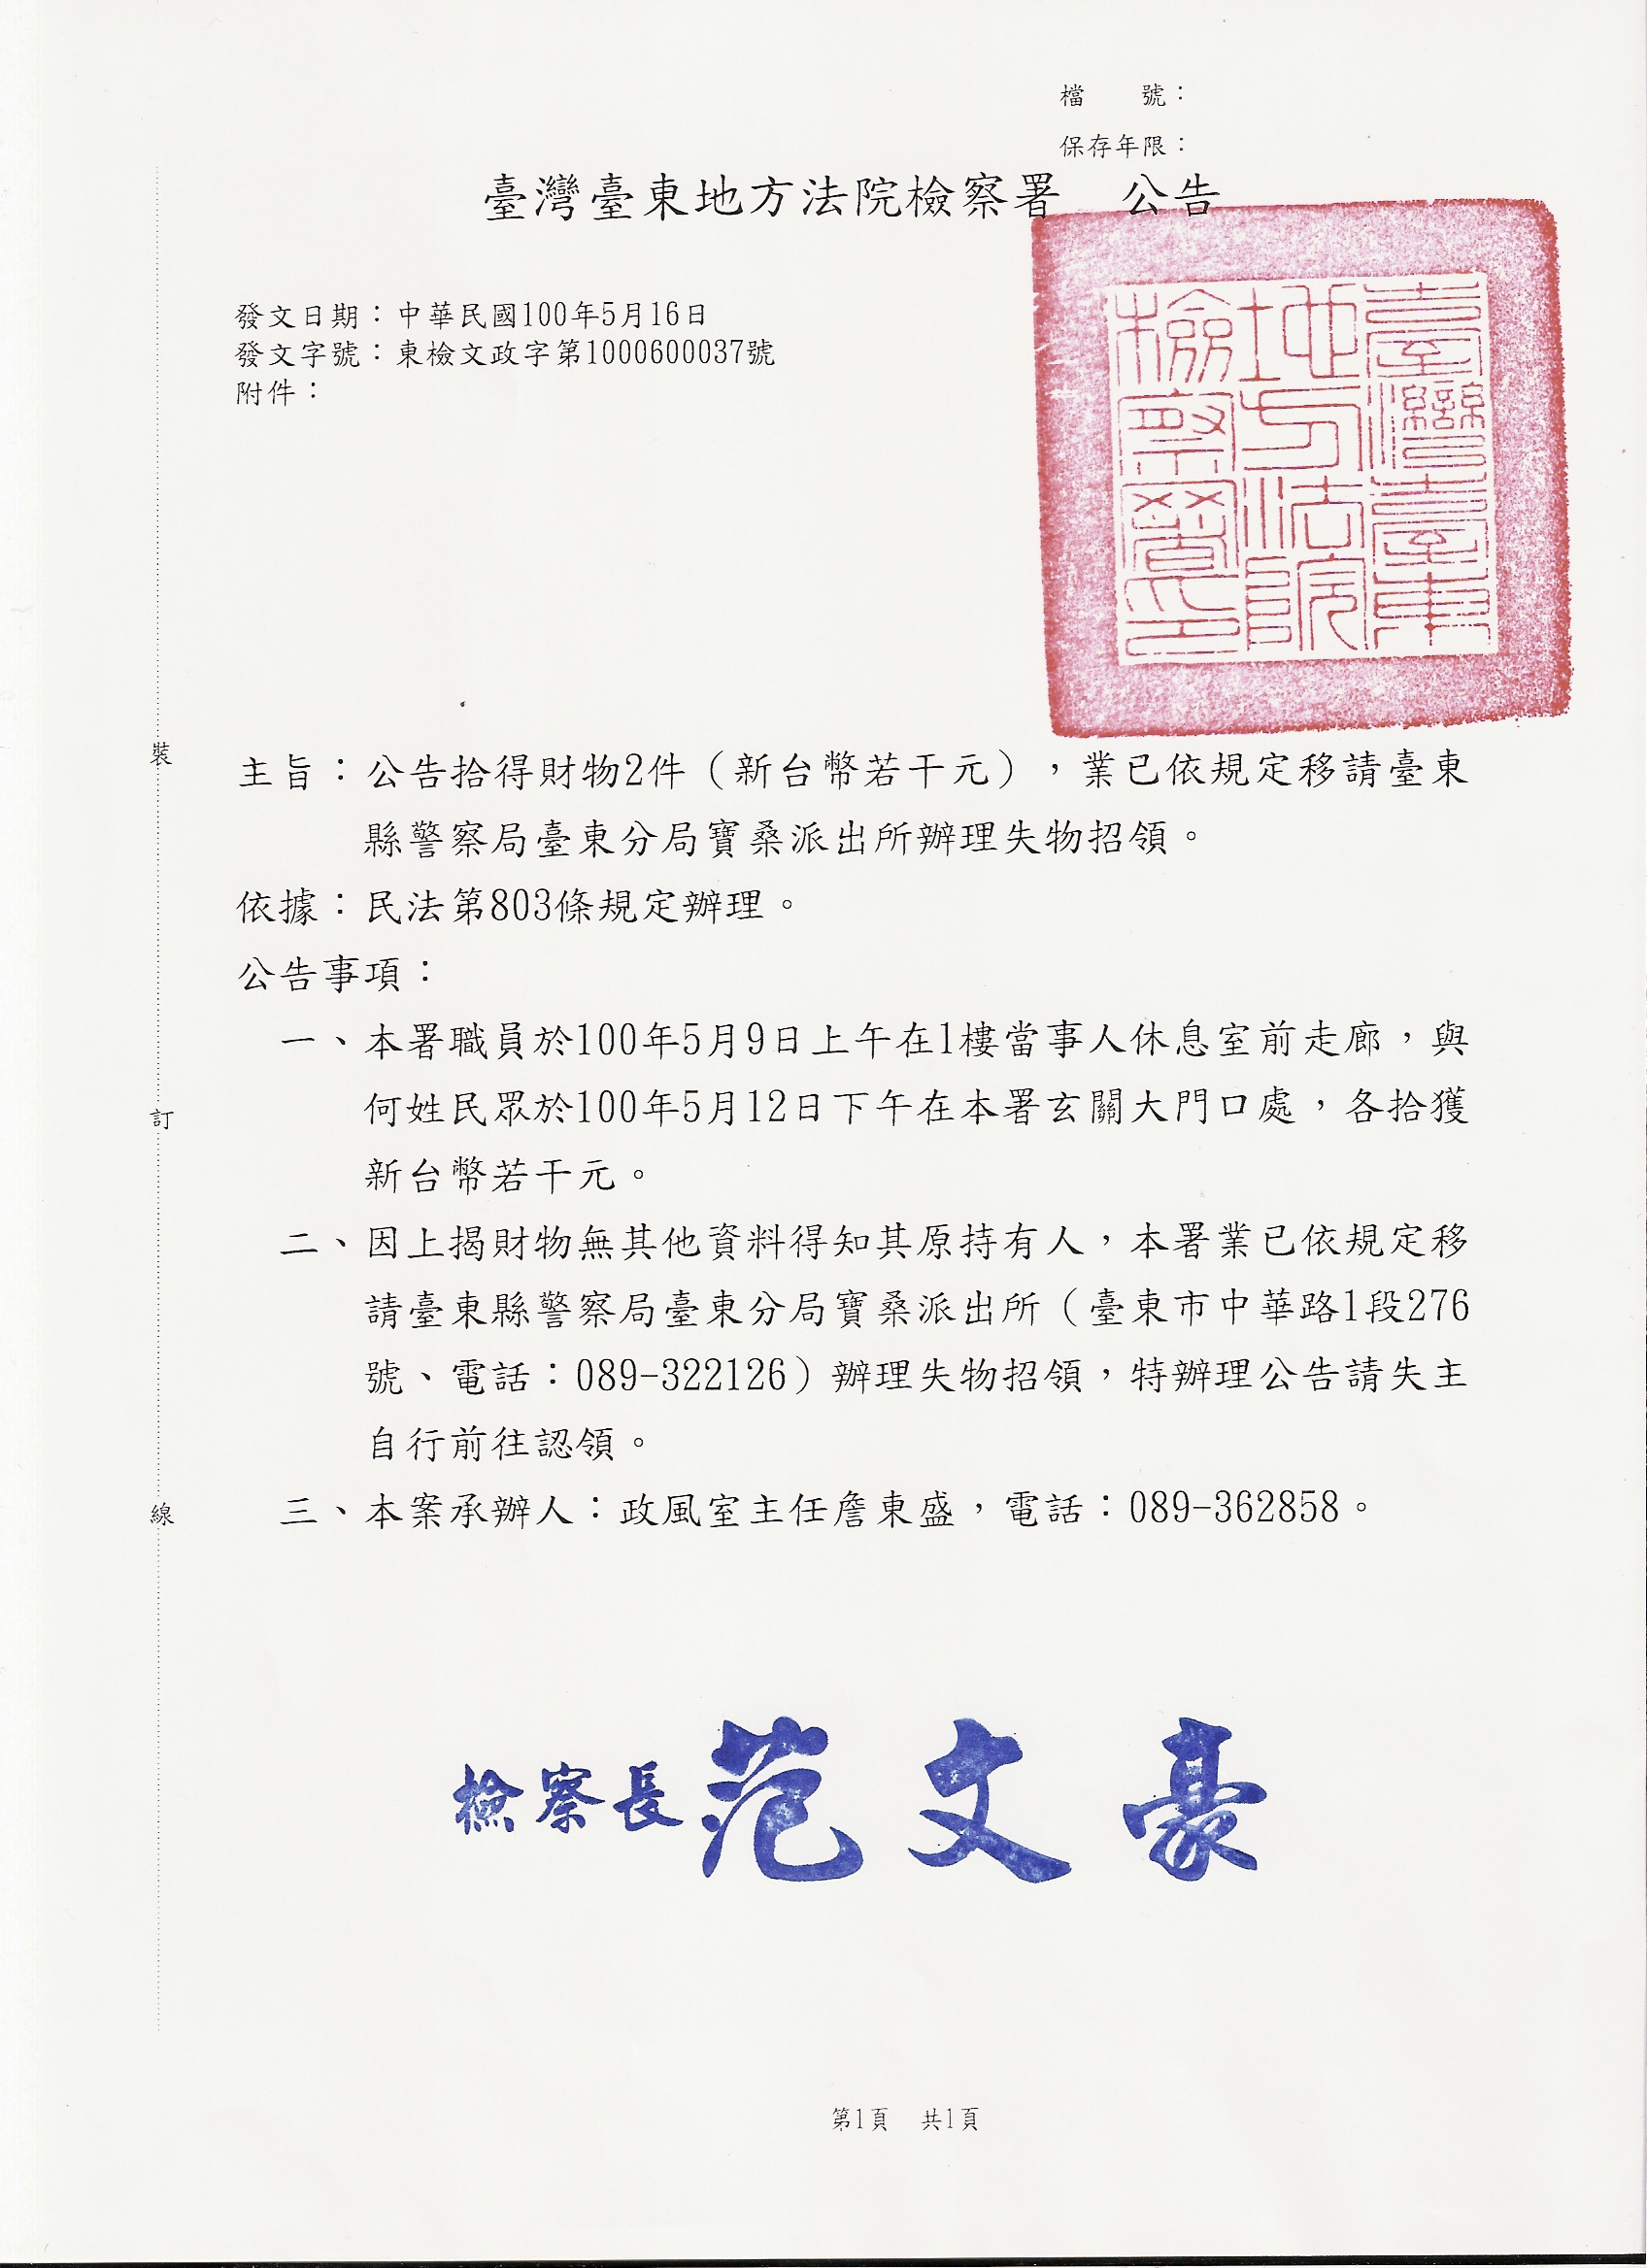 檔　　號：
保存年限：
臺灣臺東地方法院檢察署　公告
臺灣臺東
地方法院
檢察署印
發文日期：中華民國100年5月16日
發文字號：東檢文政字第1000600037號
附件：
主旨：公告拾得財物2件（新台幣若干元），業已依規定移請臺東
縣警察局臺東分局寶桑派出所辦理失物招領。
依據：民法第803條規定辦理。
公告事項：
一、本署職員於100年5月9日上午在1樓當事人休息室前走廊，與
何姓民眾於100年5月12日下午在本署玄關大門口處，各拾獲
新台幣若干元。
二、因上揭財物無其他資料得知其原持有人，本署業已依規定移
請臺東縣警察局臺東分局寶桑派出所（臺東市中華路1段276
號、電話：089-322126）辦理失物招領，特辦理公告請失主
自行前往認領。
三、本案承辦人：政風室主任詹東盛，電話：089-362858。
裝
訂
線
檢察長范文豪
第1頁　共1頁